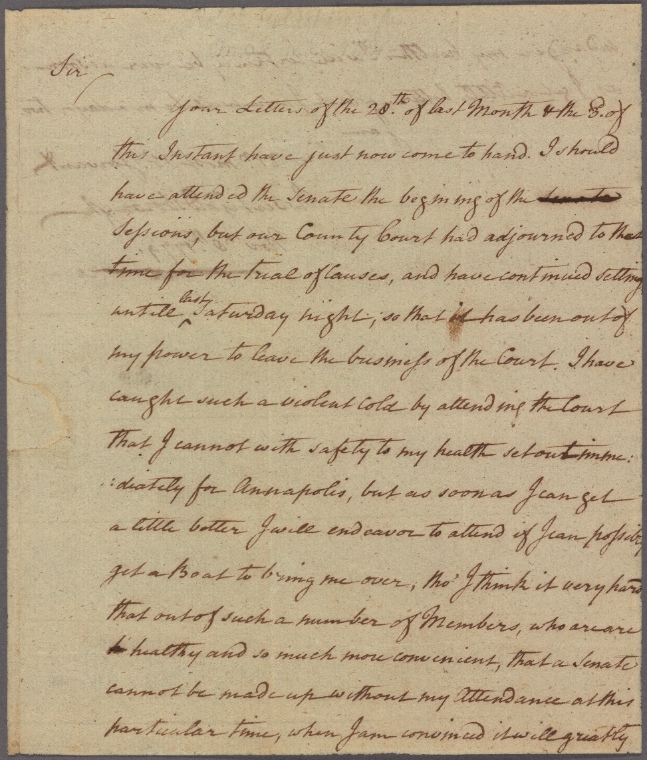 Sir
Your Letters of the 28.th of last Month & the 3. of
this Instant have just now come to hand. I should
have attended the Senate the begining of the Senate
Sessions, but our County Court had adjourned to that
time for the trial of Causes, and have continued setting
untill last Saturday night, so that it has been out of
my power to leave the business of the Court. I have
caught such a violent Cold by attending the Court
that I cannot with safety to my health set out imme:
:diately for Annapolis, but as soon as I can get
a little better I will endeavor to attend if I can possibly
get a Boat to bring me over, tho' I think it very hard
that out of such a number of Members, who are are
healthy and so much more convenient, that a Senate
cannot be made up without my Attendance at this
particular time, when I am convinced it will greatly